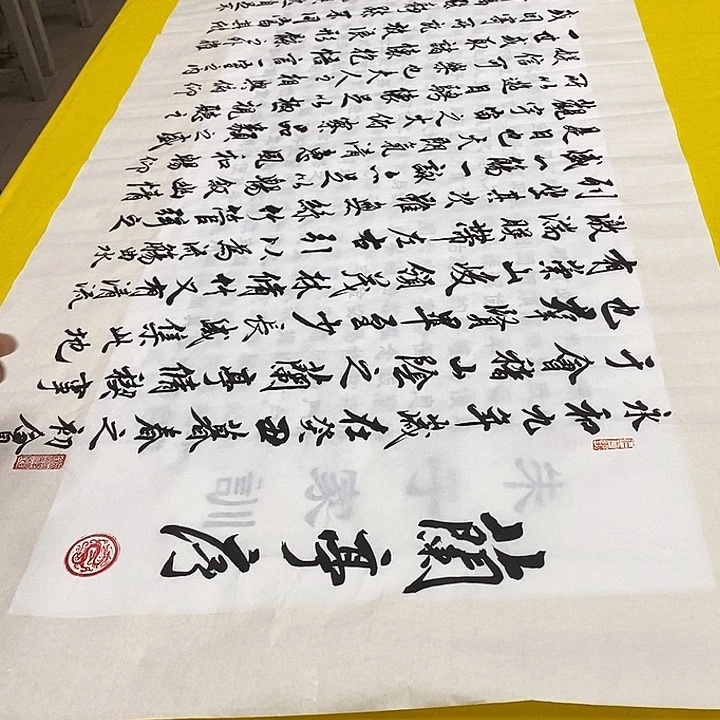 蘭亭序
永和九年歲在癸丑暮春之初會
于會稽山陰之蘭亭脩禊事
也羣賢畢至少長咸集此地
有崇山峻領茂林脩竹又有清流
激湍暎帶左右引以為流觴曲水
列坐其次雖無絲竹管弦之
盛一觴一詠亦足以暢敘幽情
是日也天朗氣清惠風和暢仰
觀宇宙之大俯察品類之盛
所以遊目騁懷足以極視聽之
娛信可樂也夫人之相與俯仰
一世或取諸懷抱悟言一室之內
或因寄所託放浪形骸之外雖
不同當其欣
朱子家訓